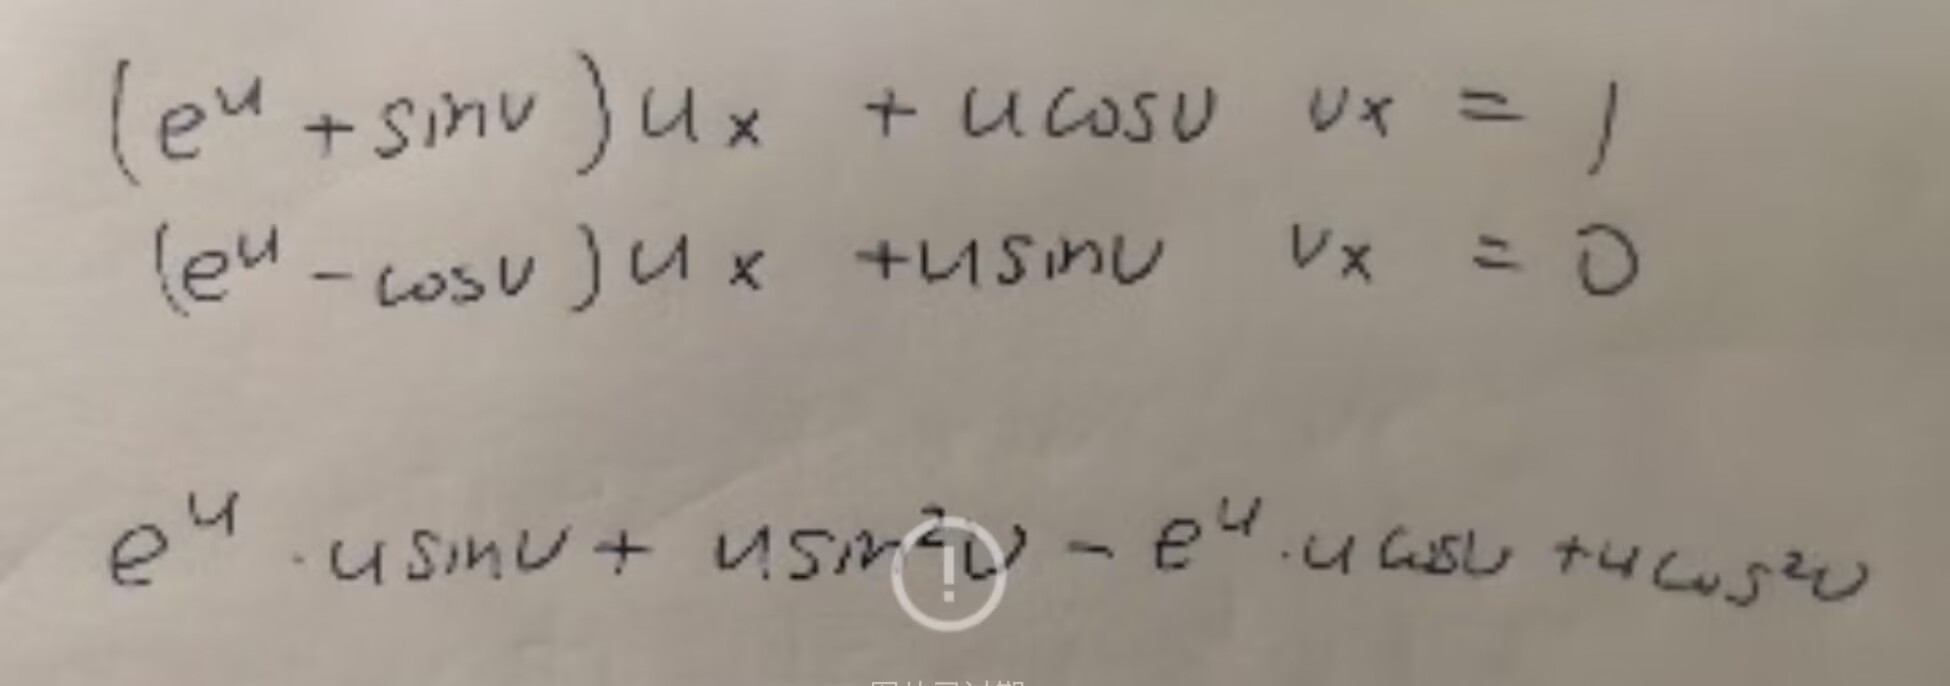 (eᵘ + sinv) ux + ucosv vx = 1
(eᵘ - cosv) ux + usinv vx = 0
eᵘ · usinv + usin²v - eᵘ · ucosv + ucos²v